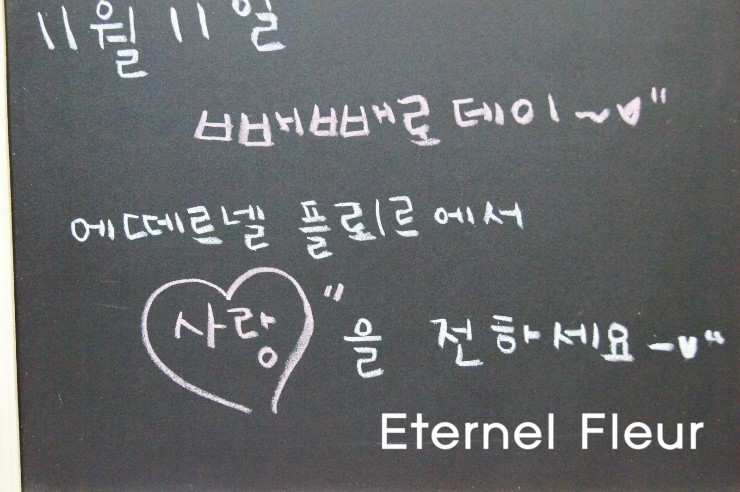 11월 11일
빼빼로데이~♥"
에떼르넬 플뢰르에서
사랑"을 전하세요~♥"
Eternel Fleur